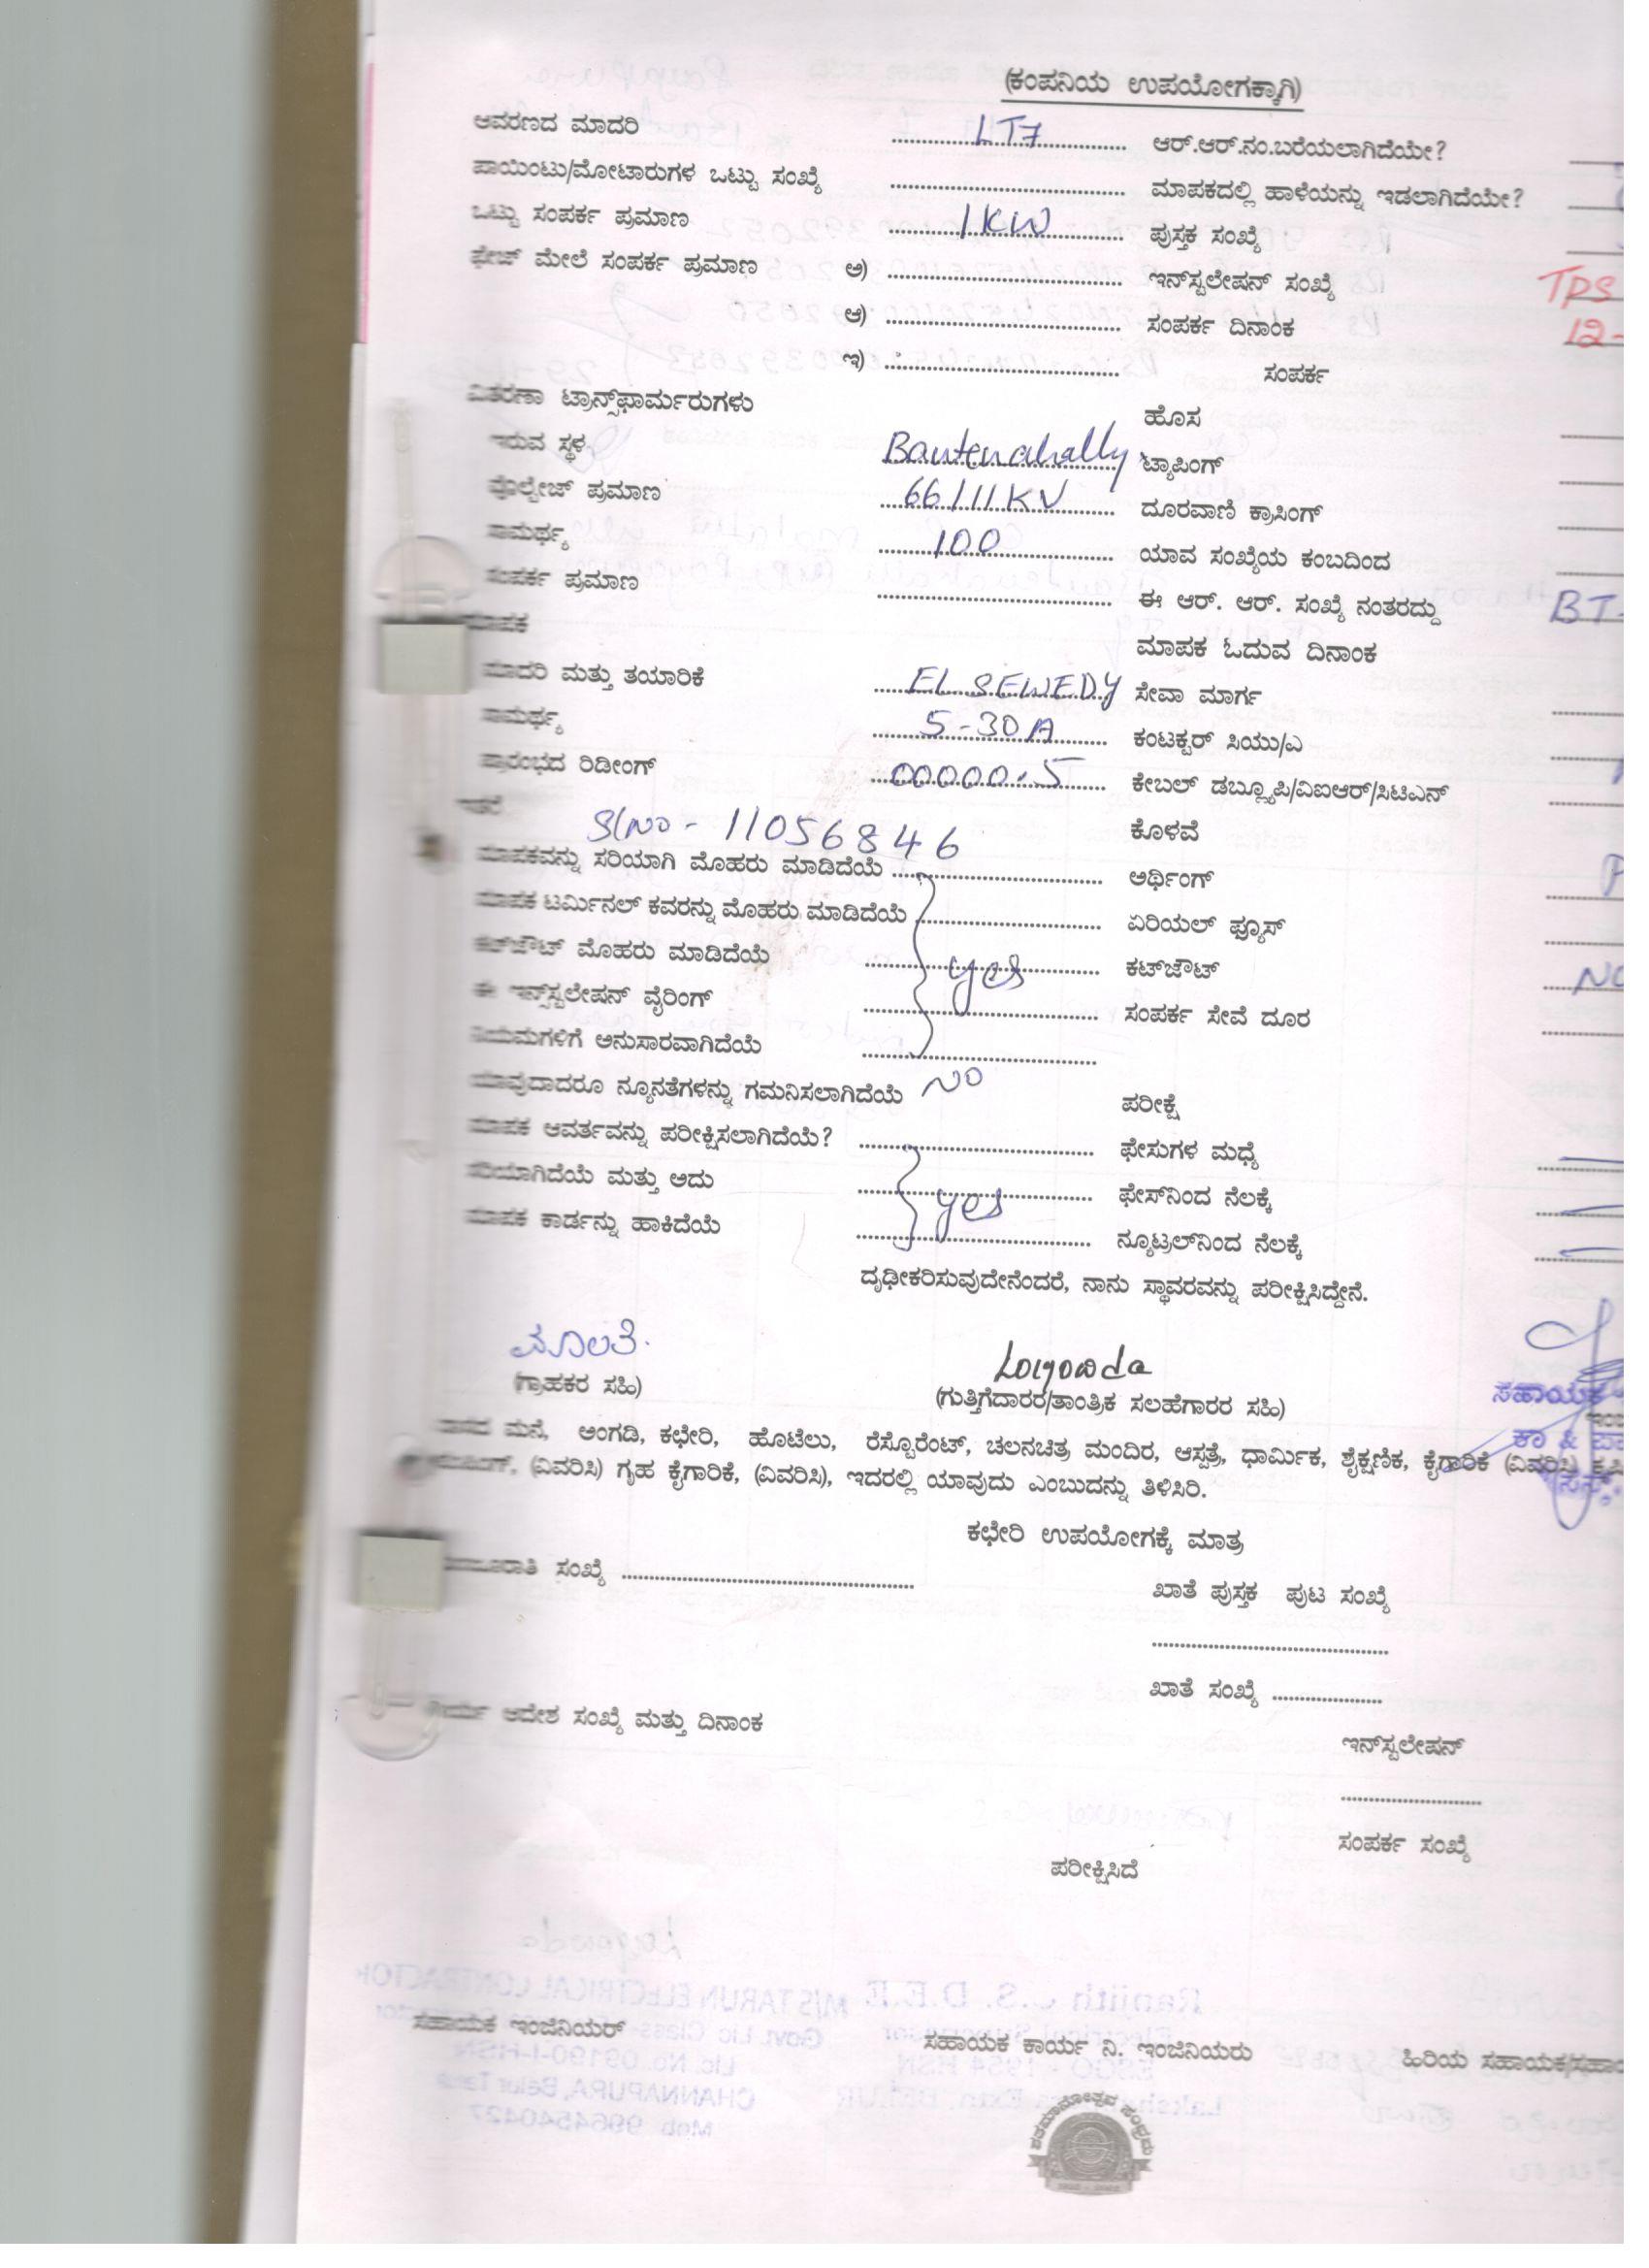 (ಕಂಪನಿಯ ಉಪಯೋಗಕ್ಕಾಗಿ)
ಆವರಣದ ಮಾದರಿ LT7 ಆರ್.ಆರ್.ನಂ.ಬರೆಯಲಾಗಿದೆಯೇ?
ಪಾಯಿಂಟು/ಮೋಟಾರುಗಳ ಒಟ್ಟು ಸಂಖ್ಯೆ ಮಾಪಕದಲ್ಲಿ ಹಾಳೆಯನ್ನು ಇಡಲಾಗಿದೆಯೇ?
ಒಟ್ಟು ಸಂಪರ್ಕ ಪ್ರಮಾಣ 1KW ಪುಸ್ತಕ ಸಂಖ್ಯೆ
ಫೇಜ್ ಮೇಲೆ ಸಂಪರ್ಕ ಪ್ರಮಾಣ ಅ) ಇನ್‌ಸ್ಟಲೇಷನ್ ಸಂಖ್ಯೆ TPS
ಆ) ಸಂಪರ್ಕ ದಿನಾಂಕ 12-
ಇ) ಸಂಪರ್ಕ
ವಿತರಣಾ ಟ್ರಾನ್ಸ್‌ಫಾರ್ಮರುಗಳು ಹೊಸ
ಇರುವ ಸ್ಥಳ Bantenahally ಟ್ಯಾಪಿಂಗ್
ವೊಲ್ಟೇಜ್ ಪ್ರಮಾಣ 66/11KV ದೂರವಾಣಿ ಕ್ರಾಸಿಂಗ್
ಸಾಮರ್ಥ್ಯ 100 ಯಾವ ಸಂಖ್ಯೆಯ ಕಂಬದಿಂದ
ಸಂಪರ್ಕ ಪ್ರಮಾಣ ಈ ಆರ್. ಆರ್. ಸಂಖ್ಯೆ ನಂತರದ್ದು BT-
ಮಾಪಕ ಮಾಪಕ ಓದುವ ದಿನಾಂಕ
ಮಾದರಿ ಮತ್ತು ತಯಾರಿಕೆ EL SEWEDY ಸೇವಾ ಮಾರ್ಗ
ಸಾಮರ್ಥ್ಯ 5-30A ಕಂಟಕ್ಟರ್ ಸಿಯು/ಎ
ಪ್ರಾರಂಭದ ರಿಡೀಂಗ್ 00000.5 ಕೇಬಲ್ ಡಬ್ಲ್ಯೂಪಿ/ವಿಐಆರ್/ಸಿಟಿಎನ್
ಇತರೆ Sl No - 11056846 ಕೊಳವೆ
ಮಾಪಕವನ್ನು ಸರಿಯಾಗಿ ಮೊಹರು ಮಾಡಿದೆಯೆ ಅರ್ಥಿಂಗ್
ಮಾಪಕ ಟರ್ಮಿನಲ್ ಕವರನ್ನು ಮೊಹರು ಮಾಡಿದೆಯೆ ಏರಿಯಲ್ ಫ್ಯೂಸ್
ಕಟ್‌ಔಟ್ ಮೊಹರು ಮಾಡಿದೆಯೆ yes ಕಟ್‌ಔಟ್
ಈ ಇನ್ಸ್‌ಸ್ಟಲೇಷನ್ ವೈರಿಂಗ್ ಸಂಪರ್ಕ ಸೇವೆ ದೂರ
ನಿಯಮಗಳಿಗೆ ಅನುಸಾರವಾಗಿದೆಯೆ
ಯಾವುದಾದರೂ ನ್ಯೂನತೆಗಳನ್ನು ಗಮನಿಸಲಾಗಿದೆಯೆ NO ಪರೀಕ್ಷೆ
ಮಾಪಕ ಆವರ್ತವನ್ನು ಪರೀಕ್ಷಿಸಲಾಗಿದೆಯೆ? ಫೇಸುಗಳ ಮಧ್ಯೆ
ಸರಿಯಾಗಿದೆಯೆ ಮತ್ತು ಅದು yes ಫೇಸ್‌ನಿಂದ ನೆಲಕ್ಕೆ
ಮಾಪಕ ಕಾರ್ಡನ್ನು ಹಾಕಿದೆಯೆ ನ್ಯೂಟ್ರಲ್‌ನಿಂದ ನೆಲಕ್ಕೆ
ದೃಢೀಕರಿಸುವುದೇನೆಂದರೆ, ನಾನು ಸ್ಥಾವರವನ್ನು ಪರೀಕ್ಷಿಸಿದ್ದೇನೆ.
(ಗ್ರಾಹಕರ ಸಹಿ) (ಗುತ್ತಿಗೆದಾರರ/ತಾಂತ್ರಿಕ ಸಲಹೆಗಾರರ ಸಹಿ) ಸಹಾಯಕ
ವಾಸದ ಮನೆ, ಅಂಗಡಿ, ಕಛೇರಿ, ಹೊಟೆಲು, ರೆಸ್ಟೊರೆಂಟ್, ಚಲನಚಿತ್ರ ಮಂದಿರ, ಆಸ್ಪತ್ರೆ, ಧಾರ್ಮಿಕ, ಶೈಕ್ಷಣಿಕ, ಕೈಗಾರಿಕೆ (ವಿವರಿಸಿ)
(ವಿವರಿಸಿ) ಗೃಹ ಕೈಗಾರಿಕೆ, (ವಿವರಿಸಿ), ಇದರಲ್ಲಿ ಯಾವುದು ಎಂಬುದನ್ನು ತಿಳಿಸಿರಿ.
ಕಛೇರಿ ಉಪಯೋಗಕ್ಕೆ ಮಾತ್ರ
ಸಂಖ್ಯೆ ಖಾತೆ ಪುಸ್ತಕ ಪುಟ ಸಂಖ್ಯೆ
ಖಾತೆ ಸಂಖ್ಯೆ
ಆದೇಶ ಸಂಖ್ಯೆ ಮತ್ತು ದಿನಾಂಕ
ಇನ್‌ಸ್ಟಲೇಷನ್
ಸಂಪರ್ಕ ಸಂಖ್ಯೆ
ಪರೀಕ್ಷಿಸಿದೆ
ಸಹಾಯಕ ಇಂಜಿನಿಯರ್ ಸಹಾಯಕ ಕಾರ್ಯ ನಿ. ಇಂಜಿನಿಯರು ಹಿರಿಯ ಸಹಾಯಕ/ಸಹಾಯ